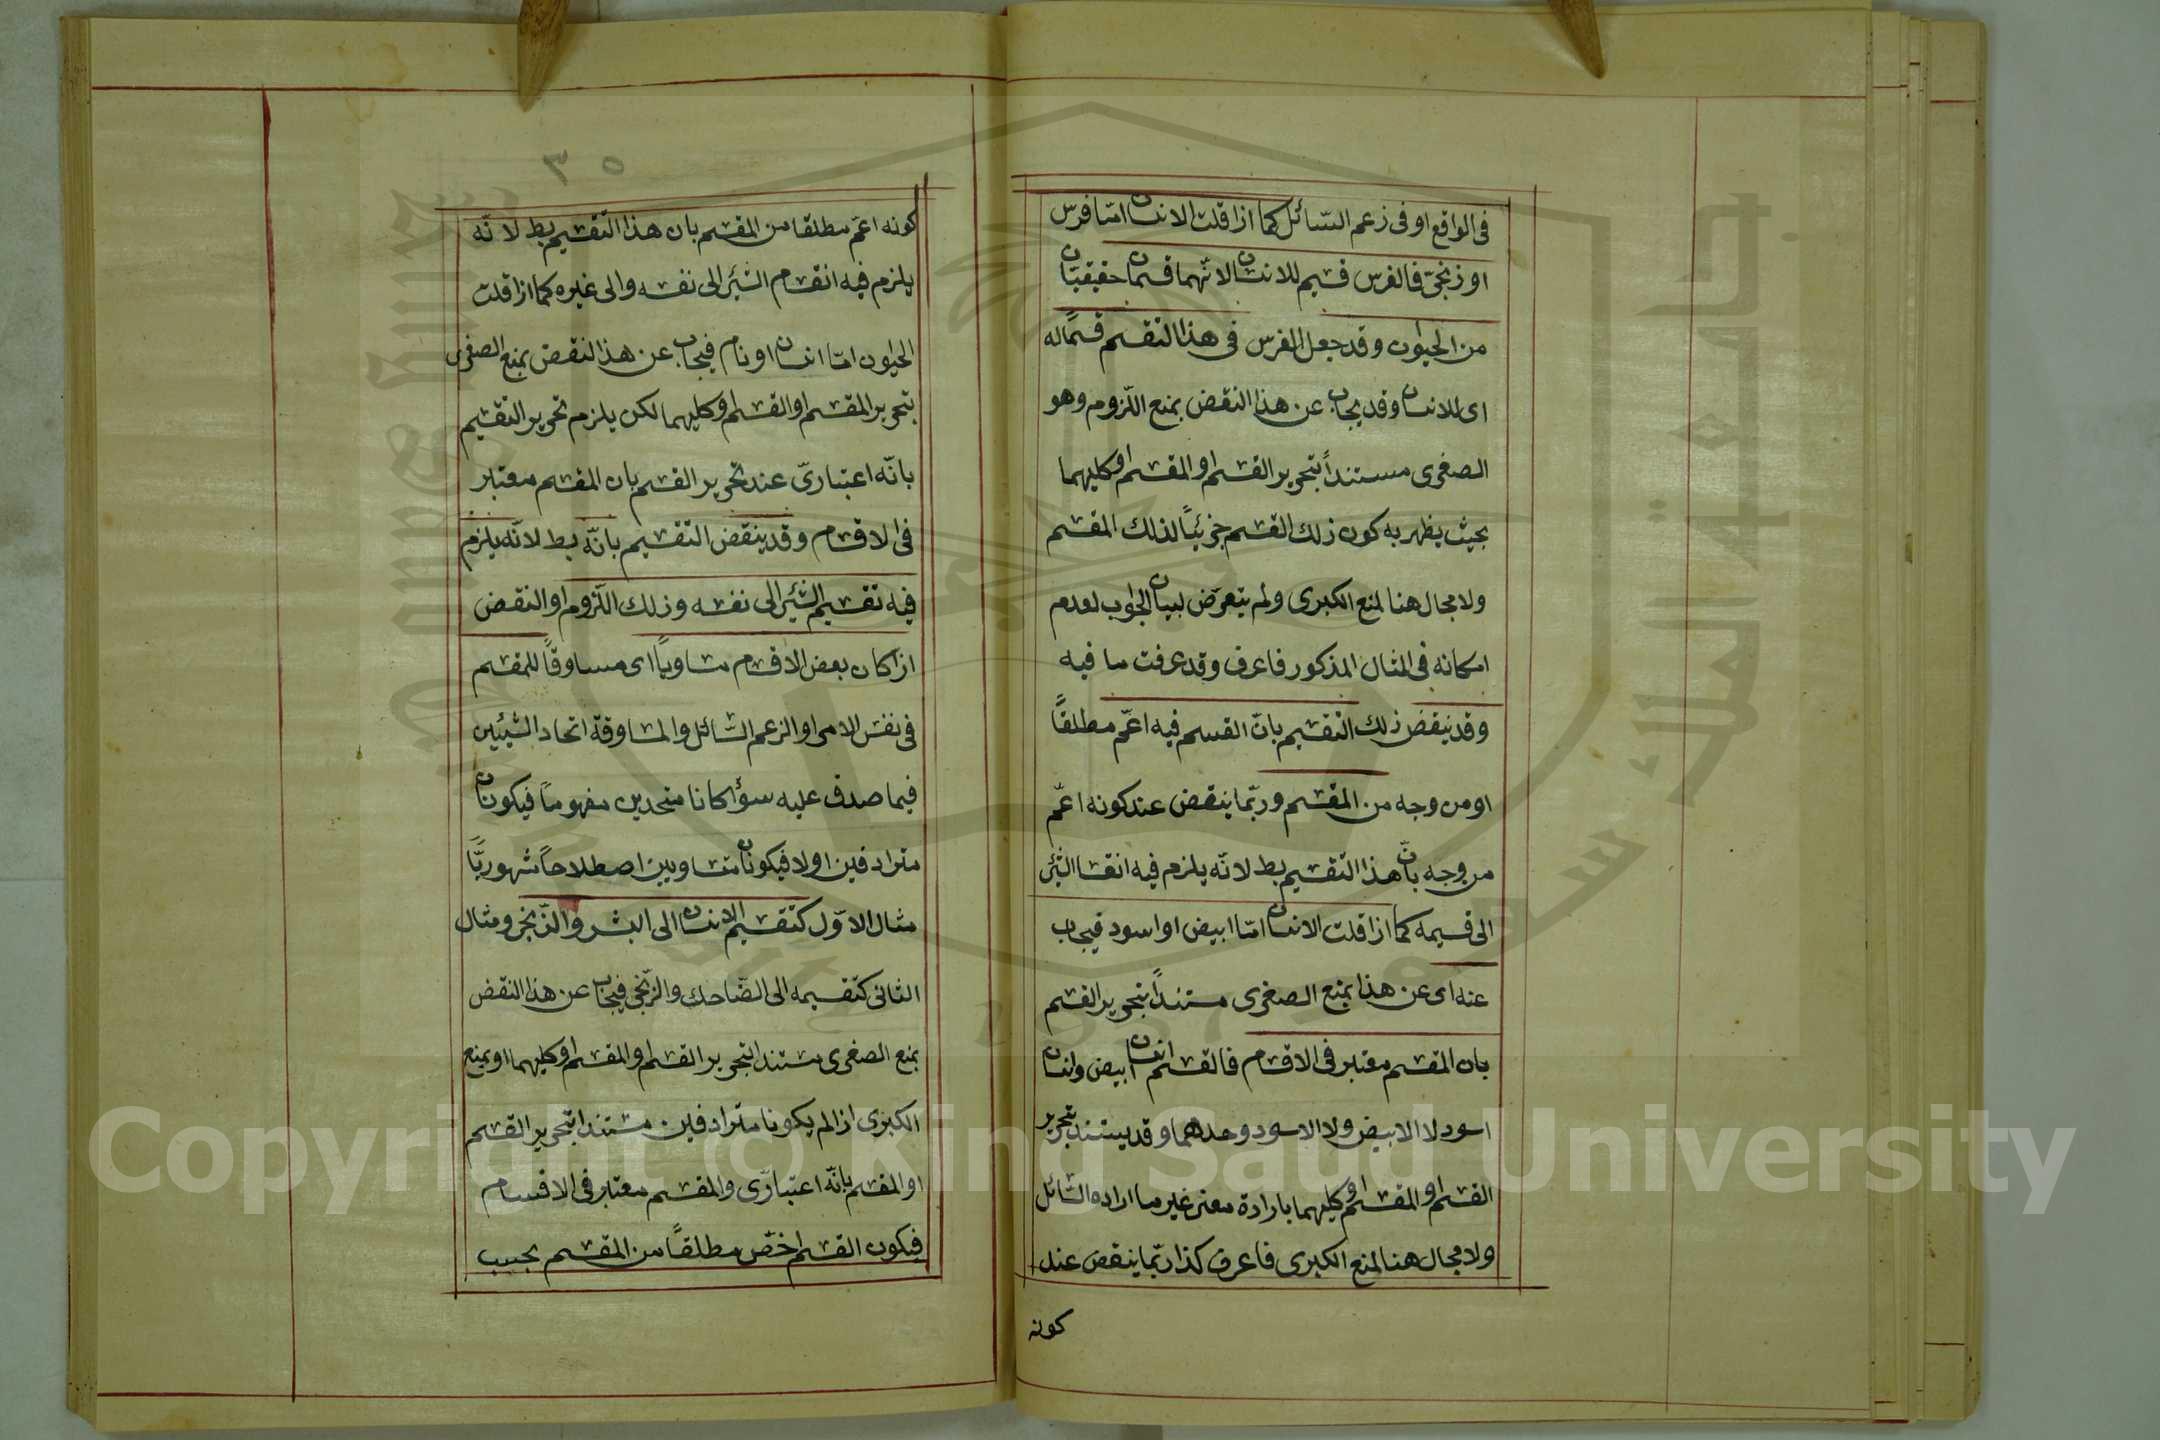 فى الواقع او فى زعم السّائل كما اذا قلت الانسان امّا فرس
او زنجىّ فالفرس قسيم للانسان لانّهما قسمان حقيقيّان
من الحيوان وقد جعل الفرس فى هذا التقسيم قسمًا له
اى للانسان وقد يجاب عن هذا النقض بمنع اللّزوم وهو
الصغرى مستنداً بتحرير القسم او المقسم او كليهما
بحيث يظهر به كون ذلك القسم جزئيًا لذلك المقسم
ولا مجال هنا لمنع الكبرى ولم يتعرّض لبيان الجواب لعدم
امكانه فى المثال المذكور فاعرف وقد عرفت ما فيه
وقد ينقض ذلك التقسيم بانّ القسم فيه اعّم مطلقًا
او من وجه من المقسم وربّما ينقض عند كونه اعّم
من وجه بانّ هذا التّقسيم بط لانّه يلزم فيه انقسام الشئ
الى قسيمه كما اذا قلت الانسان امّا ابيض او اسود فيجاب
عنه اى عن هذا بمنع الصغرى مستنداً بتحرير القسم
بان المقسم معتبر فى الاقسام فالقسم انسان ابيض وانسان
اسود لا الابيض ولا الاسود وحدهما وقد يستند بتحرير
القسم او المقسم او كليهما بارادة معنى غير ما اراده السّائل
ولا مجال هنا لمنع الكبرى فاعرف كذا ربّما ينقض عند
كونه
٣٥
كونه اعّم مطلقا من المقسم بان هذا التّقسيم بط لانّه
يلزم فيه انقسام الشئ الى نفسه والى غيره كما اذا قلت
الحيوان امّا انسان او نام فيجاب عن هذا النقض بمنع الصغرى
بتحرير المقسم او القسم او كليهما لكن يلزم تحرير التّقسيم
بانّه اعتبارىّ عند تحرير القسم بان المقسم معتبر
فى الاقسام وقد ينقض التّقسيم بانّه بط لانّه يلزم
فيه تقسيم الشئ الى نفسه وذلك اللّزوم او النقض
اذا كان بعض الاقسام مساوياً اى مساوقًا للمقسم
فى نفس الامر او الزعم السّائل والمساوقة اتحاد الشّيئين
فيما صدق عليه سواء كانا متحدين مفهومًا فيكونان
مترادفين او لا فيكونان متساويين اصطلاحاً شهوريًّا
مثال الاوّل كتقسيم الانسان الى البشر والزّنجى ومثال
الثانى كتقسيمه الى الضّاحك والزّنجى فيجاب عن هذا النقض
بمنع الصغرى مستندا بتحرير القسم او المقسم او كليهما او بمنع
الكبرى اذا لم يكونا مترادفين مستندا بتحرير القسم
او المقسم بانّه اعتبارّى والمقسم معتبر فى الاقسام
فيكون القسم اخصّ مطلقًا من المقسم بحسب
Copyright © King Saud University